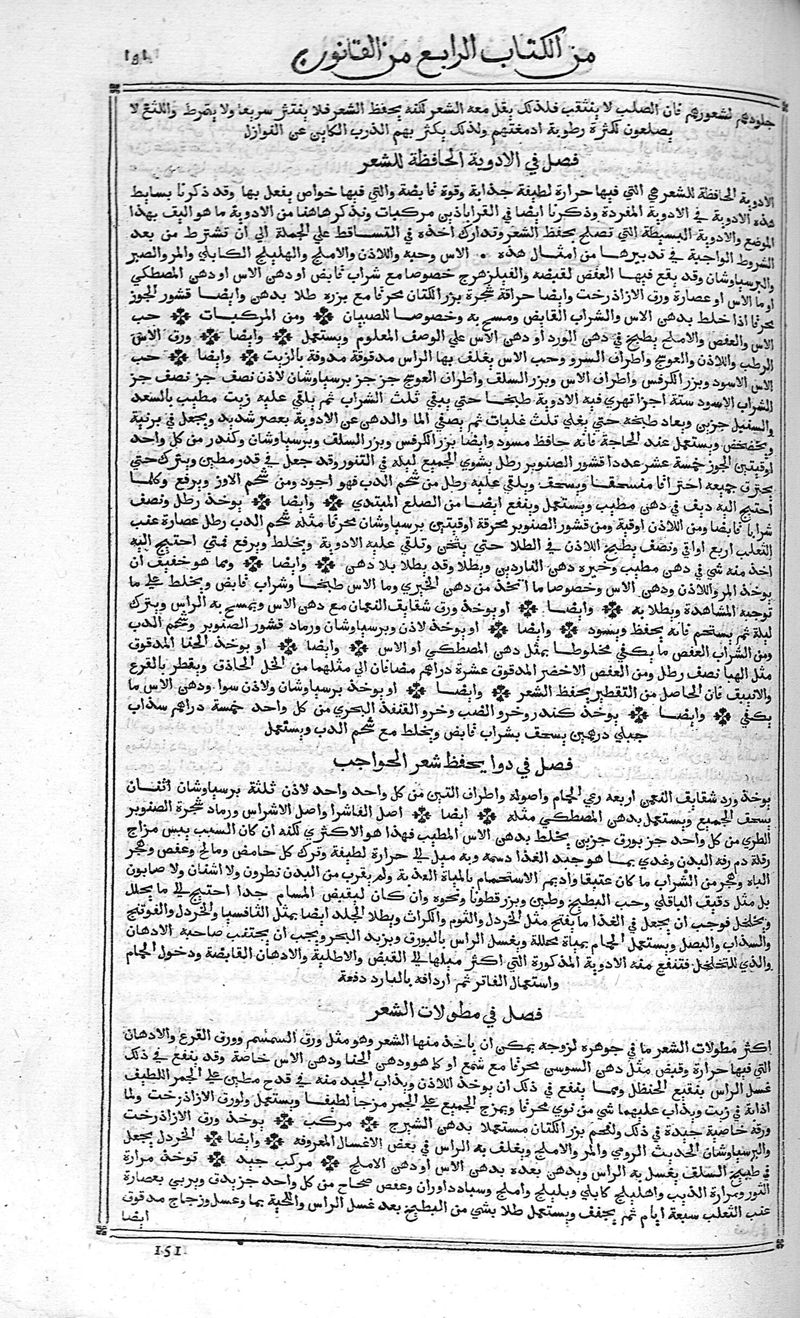 من الكتاب الرابع من القانون
جلودهم لشعورهم فان الصلب لا ينثقب فلذلك يقل معه الشعر لكنه يحفظ الشعر فلا ينتثر سريعا ولا يمرط واللثغ لا
يصلعون لكثرة رطوبة ادمغتهم ولذلك يكثر بهم الذرب الكاين عن النوازل
فصل في الادوية الحافظة للشعر
الادوية الحافظة للشعر هي التي فيها حرارة لطيفة جذابة وقوة قابضة والتي فيها خواص يفعل بها وقد ذكرنا بسايط
هذه الادوية في الادوية المفردة وذكرنا ايضا في القراباذين مركبات ونذكر هاهنا من الادوية ما هو اليف بهذا
الموضع والادوية البسيطة التي تصلح بحفظ الشعر وتدارك اخذه في التساقط علي الجملة الي ان تشترط من بعد
الشروط الواجبة في تدبيرها من امثال هذه الاس وحبه واللاذن والاملج والهليلج الكابلي والمر والصبر
والبرسياوشان وقد يقع فيها العفص لقبضه والفيلزهرج خصوصا مع شراب قابض او دهن الاس او دهن المصطكي
او ما الاس او عصارة ورق الازاذرخت وايضا حراقة شجرة بزر الكتان محرقا مع بزره طلا بدهن وايضا قشور الجوز
محرقا اذا خلط بدهن الاس والشراب القابض ومسح به وخصوصا للصبيان ومن المركبات حب
الاس والعفص والاملج يطبخ في دهن الورد او دهن الاس علي الوصف المعلوم ويستعمل وايضا ورق الاس
الرطب واللاذن والعوسج واطراف السرو وحب الاس يغلف بها الراس مدقوقة مدوفة بالزيت وايضا حب
الاس الاسود وبزر الكرفس واطراف الاس وبزر السلف واطراف العوسج جز جز برسياوشان لاذن نصف جز نصف جز
الشراب الاسود ستة اجزا تهري فيه الادوية طبخا حتي يبقي ثلث الشراب ثم يلقي عليه زيت مطيب بالسعد
والسنبل جزين ويعاد طبخه حتي يغلي ثلث غليات ثم يصفي الما والدهن عن الادوية بعصر شديد ويجعل في برنية
ويخضخض ويستعمل عند الحاجة فانه حافظ مسود وايضا بزر الكرفس وبزر السلف وبرسياوشان وكندر من كل واحد
اوقيتين الجوز خمسة عشر عددا قشور الصنوبر رطل يشوي الجميع ليلة في التنور وقد جعل في قدر مطين ويترك حتي
يحترق جميعه احتراقا منسحقا ويسحف ويلقي عليه رطل من شحم الدب فهو اجود ومن شحم الاوز ويرفع وكلما
احتيج اليه ديف في دهن مطيب ويستعمل وينفع ايضا من الصلع المبتدي وايضا يوخذ رطل ونصف
شرابا قابضا ومن اللاذن اوقية ومن قشور الصنوبر محرقة اوقيتين برسياوشان محرقا مثله شحم الدب رطل عصارة عنب
الثعلب اربع اواقي ونصف يطبخ اللاذن في الطلا حتي يثخن وتلقي عليه الادوية ويخلط ويرفع فمتي احتيج اليه
اخذ منه شي في دهن مطيب وخيره دهن الناردين ويطلا وقد يطلا بلا دهن وايضا ومما هو خفيف ان
يوخذ المر واللاذن ودهن الاس وخصوصا ما اتخذ من دهن الخيري وما الاس طبخا وشراب قابض ويخلط علي ما
توجبه المشاهدة ويطلا به وايضا او يوخذ ورق شقايف النعمان مع دهن الاس ويمسح به الراس ويترك
ليلة ثم يستحم فانه يحفظ ويسود وايضا او يوخذ لاذن وبرسياوشان ورماد قشور الصنوبر وشحم الدب
ومن الشراب العفص ما يكفي مخلوطا بمثل دهن المصطكي او الاس وايضا او يوخذ الحنا المدقوق
مثل الهبا نصف رطل ومن العفص الاخضر المدقوق عشرة دراهم مضافان الي مثلهما من الخل الحاذق ويقطر بالقرع
والانبيف فان الحاصل من التقطير يحفظ الشعر وايضا او يوخذ برسياوشان ولاذن سوا ودهن الاس ما
يكفي وايضا يوخذ كندر وخرو الضب وخرو القنفذ البحري من كل واحد خمسة دراهم سذاب
جبلي درهمين يسحف بشراب قابض ويخلط مع شحم الدب ويستعمل
فصل في دوا يحفظ شعر الحواجب
يوخذ ورد شقايف النعمن اربعه رعي الحمام واصوله واطراف التين من كل واحد واحد لاذن ثلثة برسياوشان اثنان
يسحف الجميع ويستعمل بدهن المصطكي مثله ايضا اصل الفاشرا واصل الاشراس ورماد شجرة الصنوبر
الطري من كل واحد جز بورق جزين يخلط بدهن الاس المطيب فهذا هو الاكثري لكنه ان كان السبب يبس مزاج
وقلة دم رفه البدن وغذي بما هو جيد الغذا دسمه وبه ميل الي حرارة لطيفة وترك كل حامض ومالح وعفص وهجر
الباه وهجر من الشراب ما كان عتيقا واديم الاستحمام بالمياة العذبة ولم يقرب من البدن نطرون ولا اشنان ولا صابون
بل مثل دقيف الباقلي وحب البطيخ وطين وبزر قطونا ونحوه وان كان لتقبيض المسام جدا احتيج الي ما يحلل
ويخلخل فوجب ان يجعل في الغذا ما يفتح مثل الخردل والثوم والكراث ويطلا الجلد ايضا بمثل الثافسيا والخردل والفوتنج
والسذاب والبصل ويستعمل الحمام بمياة محللة ويغسل الراس بالبورق وبزبد البحر ويجب ان يجتنب صاحبه الادهان
والذي للتخلخل فتنفع منه الادوية المذكورة التي اكثر ميلها الي القبض والاطلية والادهان القابضة ودخول الحمام
واستعمال الفاتر ثم اردافه بالبارد دفعة
فصل في مطولات الشعر
اكثر مطولات الشعر ما في جوهره لزوجة يمكن ان ياخذ منها الشعر وهو مثل ورق السمسم وورق القرع والادهان
التي فيها حرارة وقبض مثل دهن السوسي محرقا مع شمع او كما هو ودهن الحنا ودهن الاس خاصة وقد ينفع في ذلك
غسل الراس بنقيع الحنظل ومما ينفع في ذلك ان يوخذ اللاذن ويذاب الجيد منه في قدح مطين علي الجمر اللطيف
اذابة في زيت ويذاب عليهما شي من نوي محرقا ويمزج الجميع علي الجمر مزجا لطيفا ويستعمل ولورق الازاذرخت ولما
ورقه خاصية جيدة في ذلك ولفحم بزر الكتان مستعملا بدهن الشيرج مركب يوخذ ورق الازاذرخت
والبرسياوشان الحديث الرومي والمر والاملج ويغلف به الراس في بعض الاغسال المعروفة وايضا الخردل يجعل
في طبيخ السلف يغسل به الراس ويدهن بعده بدهن الاس او دهن الاملج مركب جيد توخذ مرارة
الثور ومرارة الذيب واهليلج كابلي وبليلج واملج وسياه داوران وعفص صحاح من كل واحد جز يدق ويربي بعصارة
عنب الثعلب سبعة ايام ثم يجفف ويستعمل طلا بشي من البطيخ بعد غسل الراس واللحية بما وعسل وزجاج مدقوق
ايضا
151